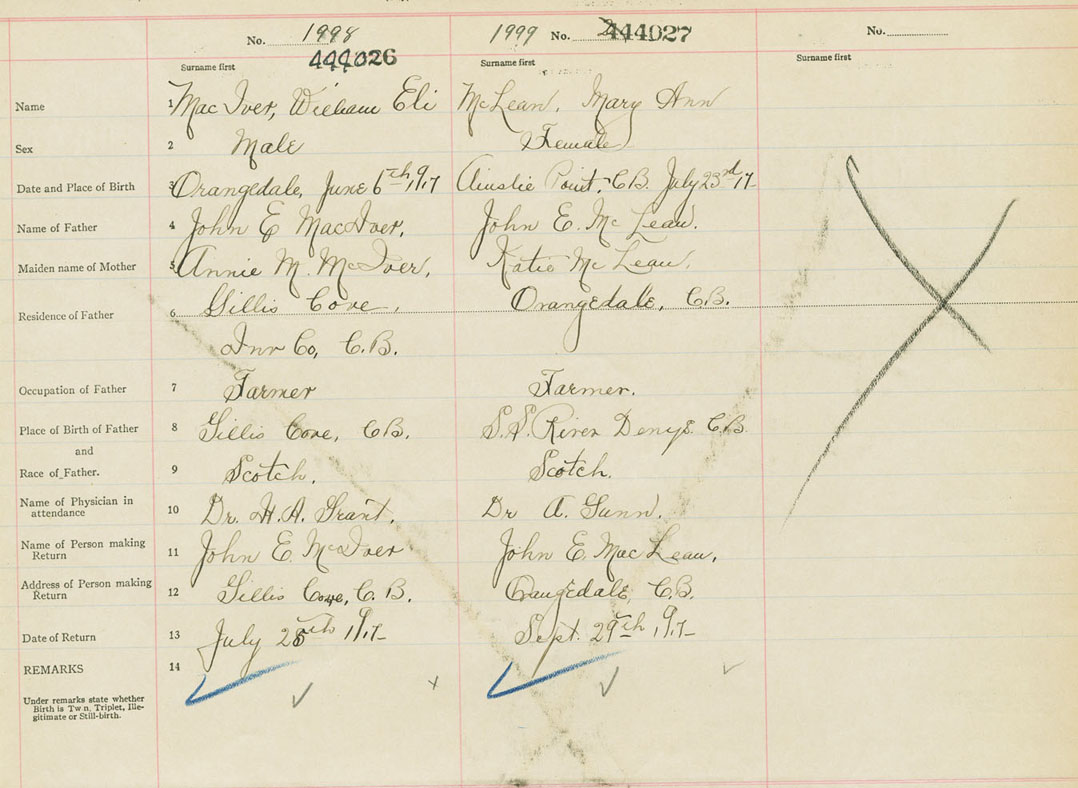 1998 1999
No. 444026 No. 444027 No.
Surname first Surname first Surname first
Name 1 Mac Iver, William Eli McLean, Mary Ann
Sex 2 Male Female
Date and Place of Birth 3 Orangedale, June 6th, 1917 Ainslie Point, C.B. July 23rd 17
Name of Father 4 John E MacIver, John E. McLean.
Maiden name of Mother 5 Annie M. McIver, Katie McLean.
Residence of Father 6 Gillis Cove, Orangedale, C.B.
Inv Co, C.B.
Occupation of Father 7 Farmer Farmer.
Place of Birth of Father 8 Gillis Cove, C.B. S.S. River Denys. C.B.
and
Race of Father. 9 Scotch, Scotch.
Name of Physician in
attendance 10 Dr. H. A. Grant. Dr A. Gunn.
Name of Person making
Return 11 John E. McIver John E. MacLean,
Address of Person making
Return 12 Gillis Cove, C.B. Orangedale, C.B.
Date of Return 13 July 28th 1917 Sept. 29th, 1917
REMARKS 14
Under remarks state whether
Birth is Twin, Triplet, Ille-
gitimate or Still-birth.